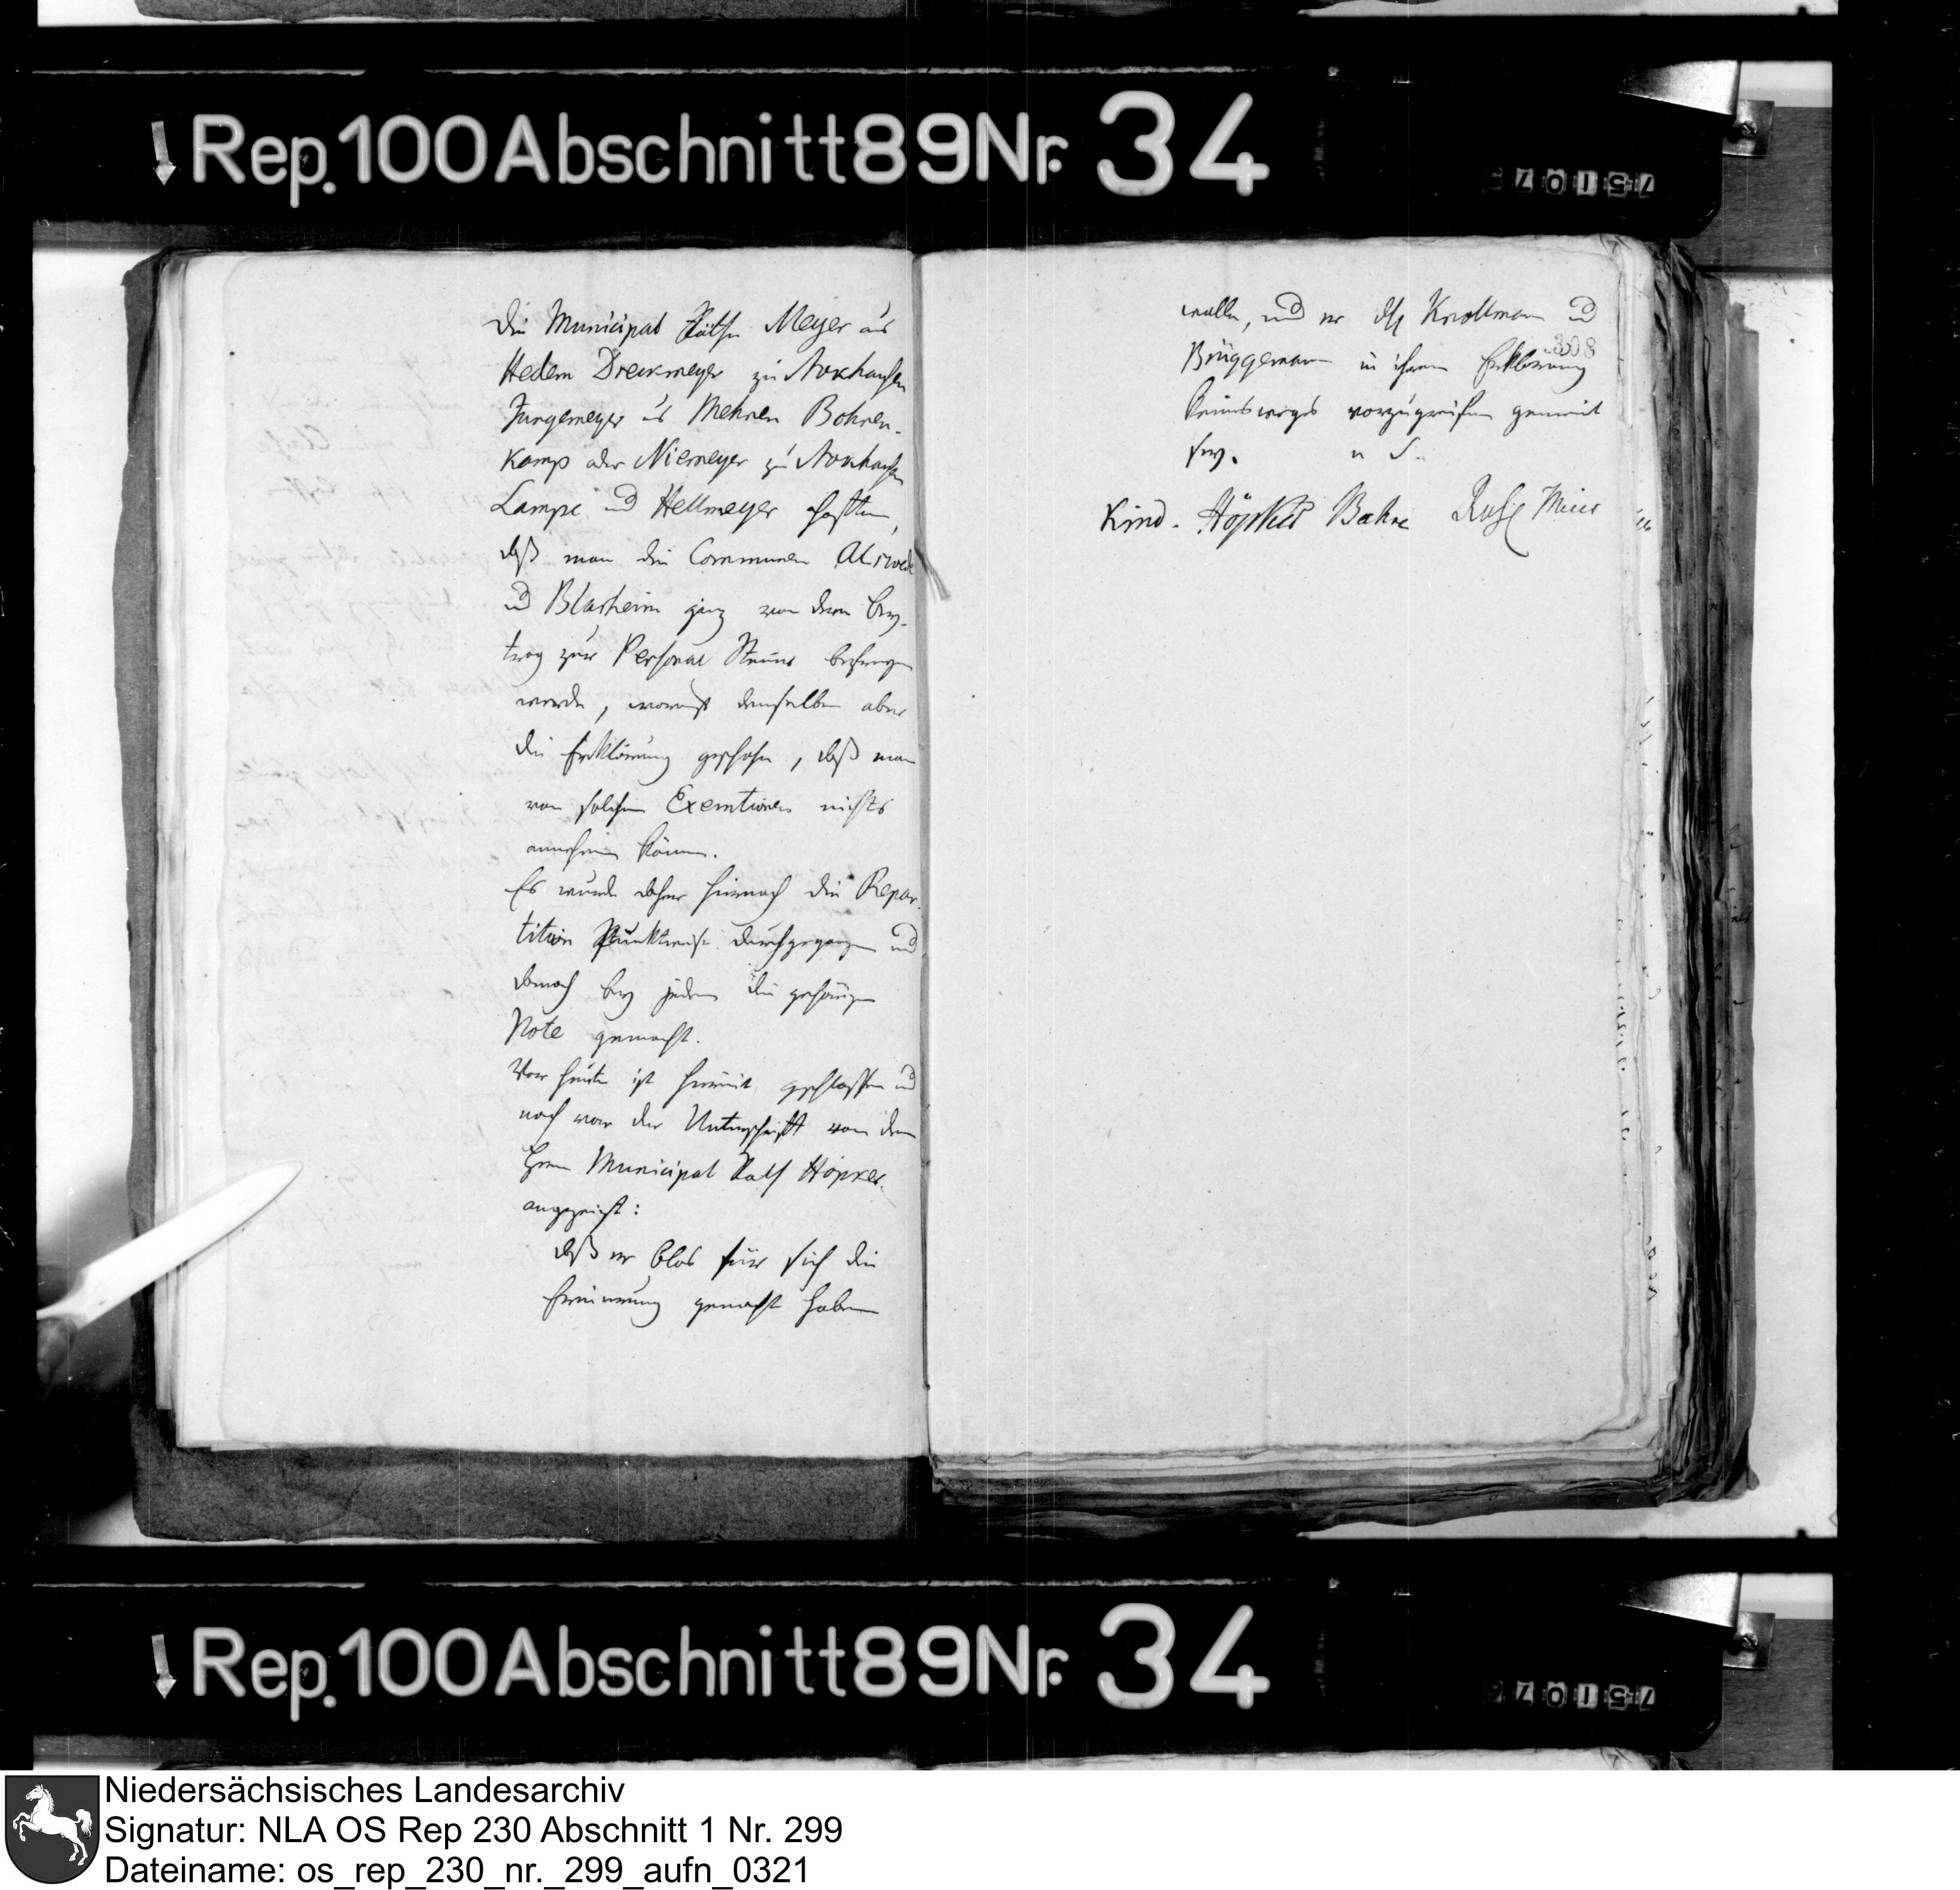 Rep. 100 Abschnitt 89 Nr. 34
Die Municipal Räthe Meyer aus
Hedem Dreckmeyer zu Arxhausen
Jungemeyer aus Mehnen Bohnen-
kamp oder Niemeyer zu Arxhausen
Lampe und Hellmeyer hofften,
daß man die Communen Alswede
und Blasheim ganz von dem Bey-
trag zur Personal Steuer befreyen
werde, worauf denselben aber
die Erklärung geschehen, daß man
von solchen Exemtionen nichts
annehmen könne.
Es wurde daher hiernach die Repar-
tition Punktweise durchgegangen und
danach bey jedem die gehörige
Note gemacht.
Vor heute ist hiermit geschlossen und
noch vor der Unterschrift von dem
Herrn Municipal Rath Höpker
angezeigt:
daß er blos für sich die
Erinnerung gemacht haben
wolle, und er Knollmann und
308
Brüggemann in ihrer Erklärung
keinesweges vorzugreifen gemeint
sey. u S.
Kind. Höpker Bahre Meier
Rep. 100 Abschnitt 89 Nr. 34
Niedersächsisches Landesarchiv
Signatur: NLA OS Rep 230 Abschnitt 1 Nr. 299
Dateiname: os_rep_230_nr._299_aufn_0321